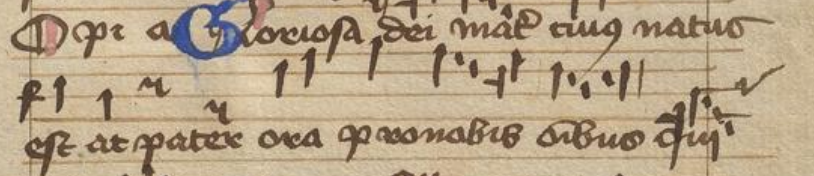 Opi a Gloriosa dei mat̄ cuiꝯ natus
est ac pater ora ꝓ nobis om̄ibus qui